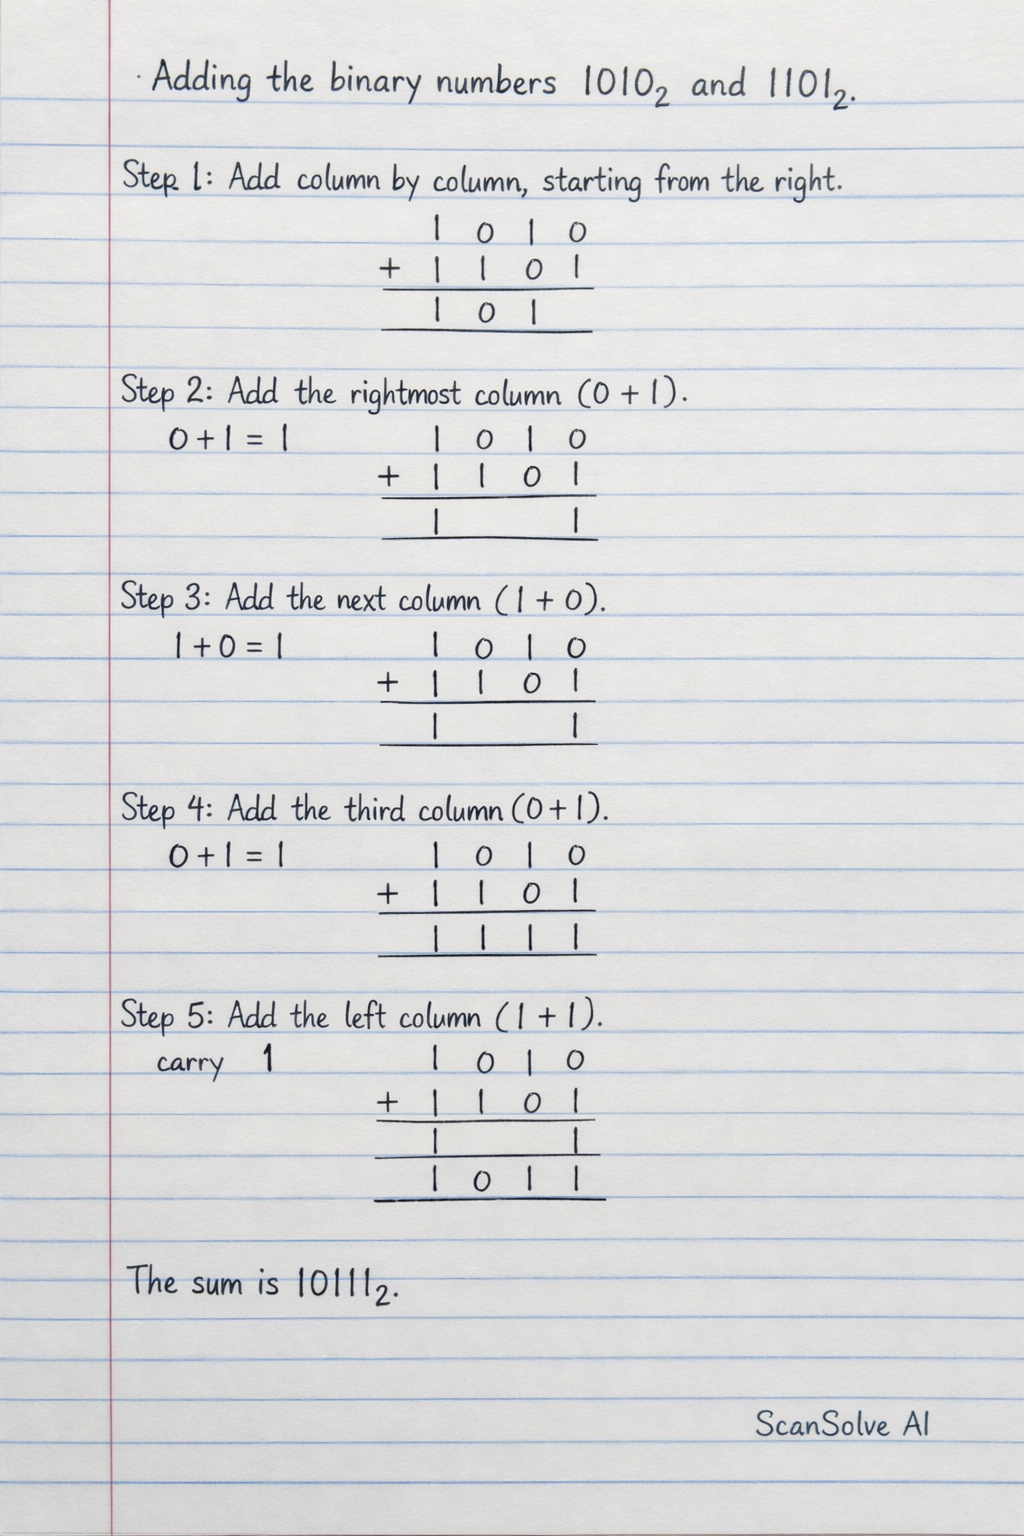 · Adding the binary numbers 1010₂ and 1101₂.
Step 1: Add column by column, starting from the right.
1 0 1 0
+ 1 1 0 1
1 0 1
Step 2: Add the rightmost column (0 + 1).
0 + 1 = 1 1 0 1 0
+ 1 1 0 1
1 1
Step 3: Add the next column (1 + 0).
1 + 0 = 1 1 0 1 0
+ 1 1 0 1
1 1
Step 4: Add the third column (0 + 1).
0 + 1 = 1 1 0 1 0
+ 1 1 0 1
1 1 1 1
Step 5: Add the left column (1 + 1).
carry 1 1 0 1 0
+ 1 1 0 1
1 1
1 0 1 1
The sum is 10111₂.
ScanSolve AI